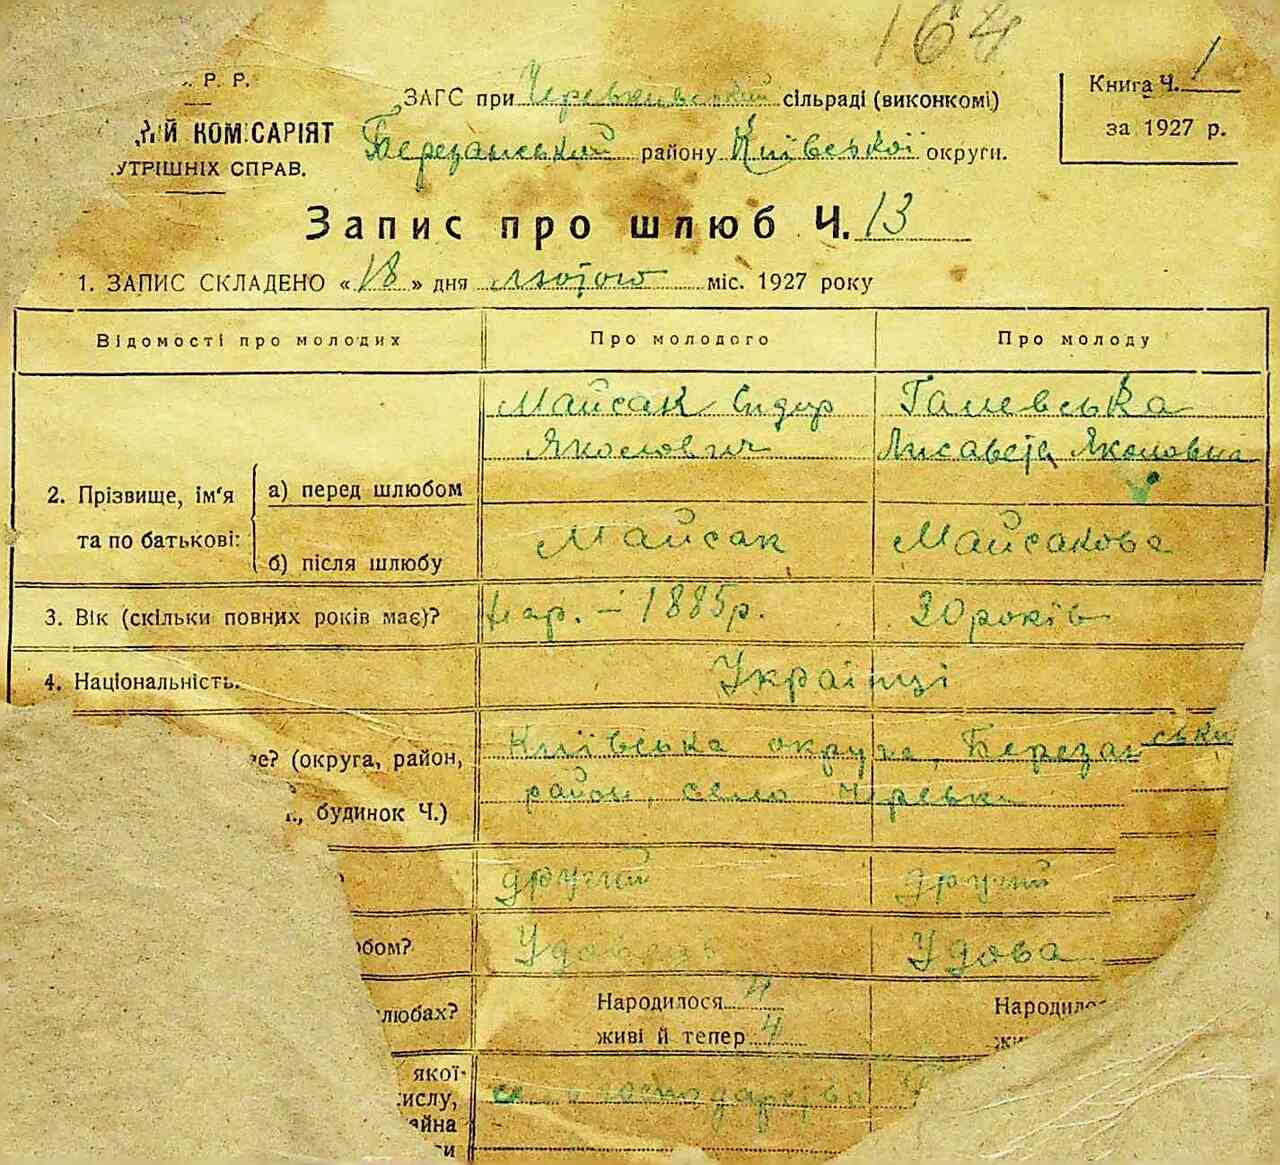 164
. Р. Р.
ИЙ КОМІСАРІЯТ
УТРІШНІХ СПРАВ.
ЗАГС при Черевківській сільраді (виконкомі)
Березанський району Київської округи.
Книга Ч. 1
за 1927 р.
Запис про шлюб Ч. 13
1. ЗАПИС СКЛАДЕНО « 18 » дня лютого міс. 1927 року
Відомості про молодих Про молодого Про молоду
2. Прізвище, ім'я та по батькові:
а) перед шлюбом
Майсак Сидир
Якович
Галевська
Лисавета Яковловна
б) після шлюбу Майсак Майсакова
3. Вік (скільки повних років має)? нар. – 1885р. 30 років
4. Національність. Українці
ре? (округа, район,
., будинок Ч.)
Київська округа, Березанський
район, село Черевки
другий другий
обом? Удовець Удова
любах?
Народилося 4
живі й тепер 4
Народило
жи
якої-
ислу,
айна
ти
господарство